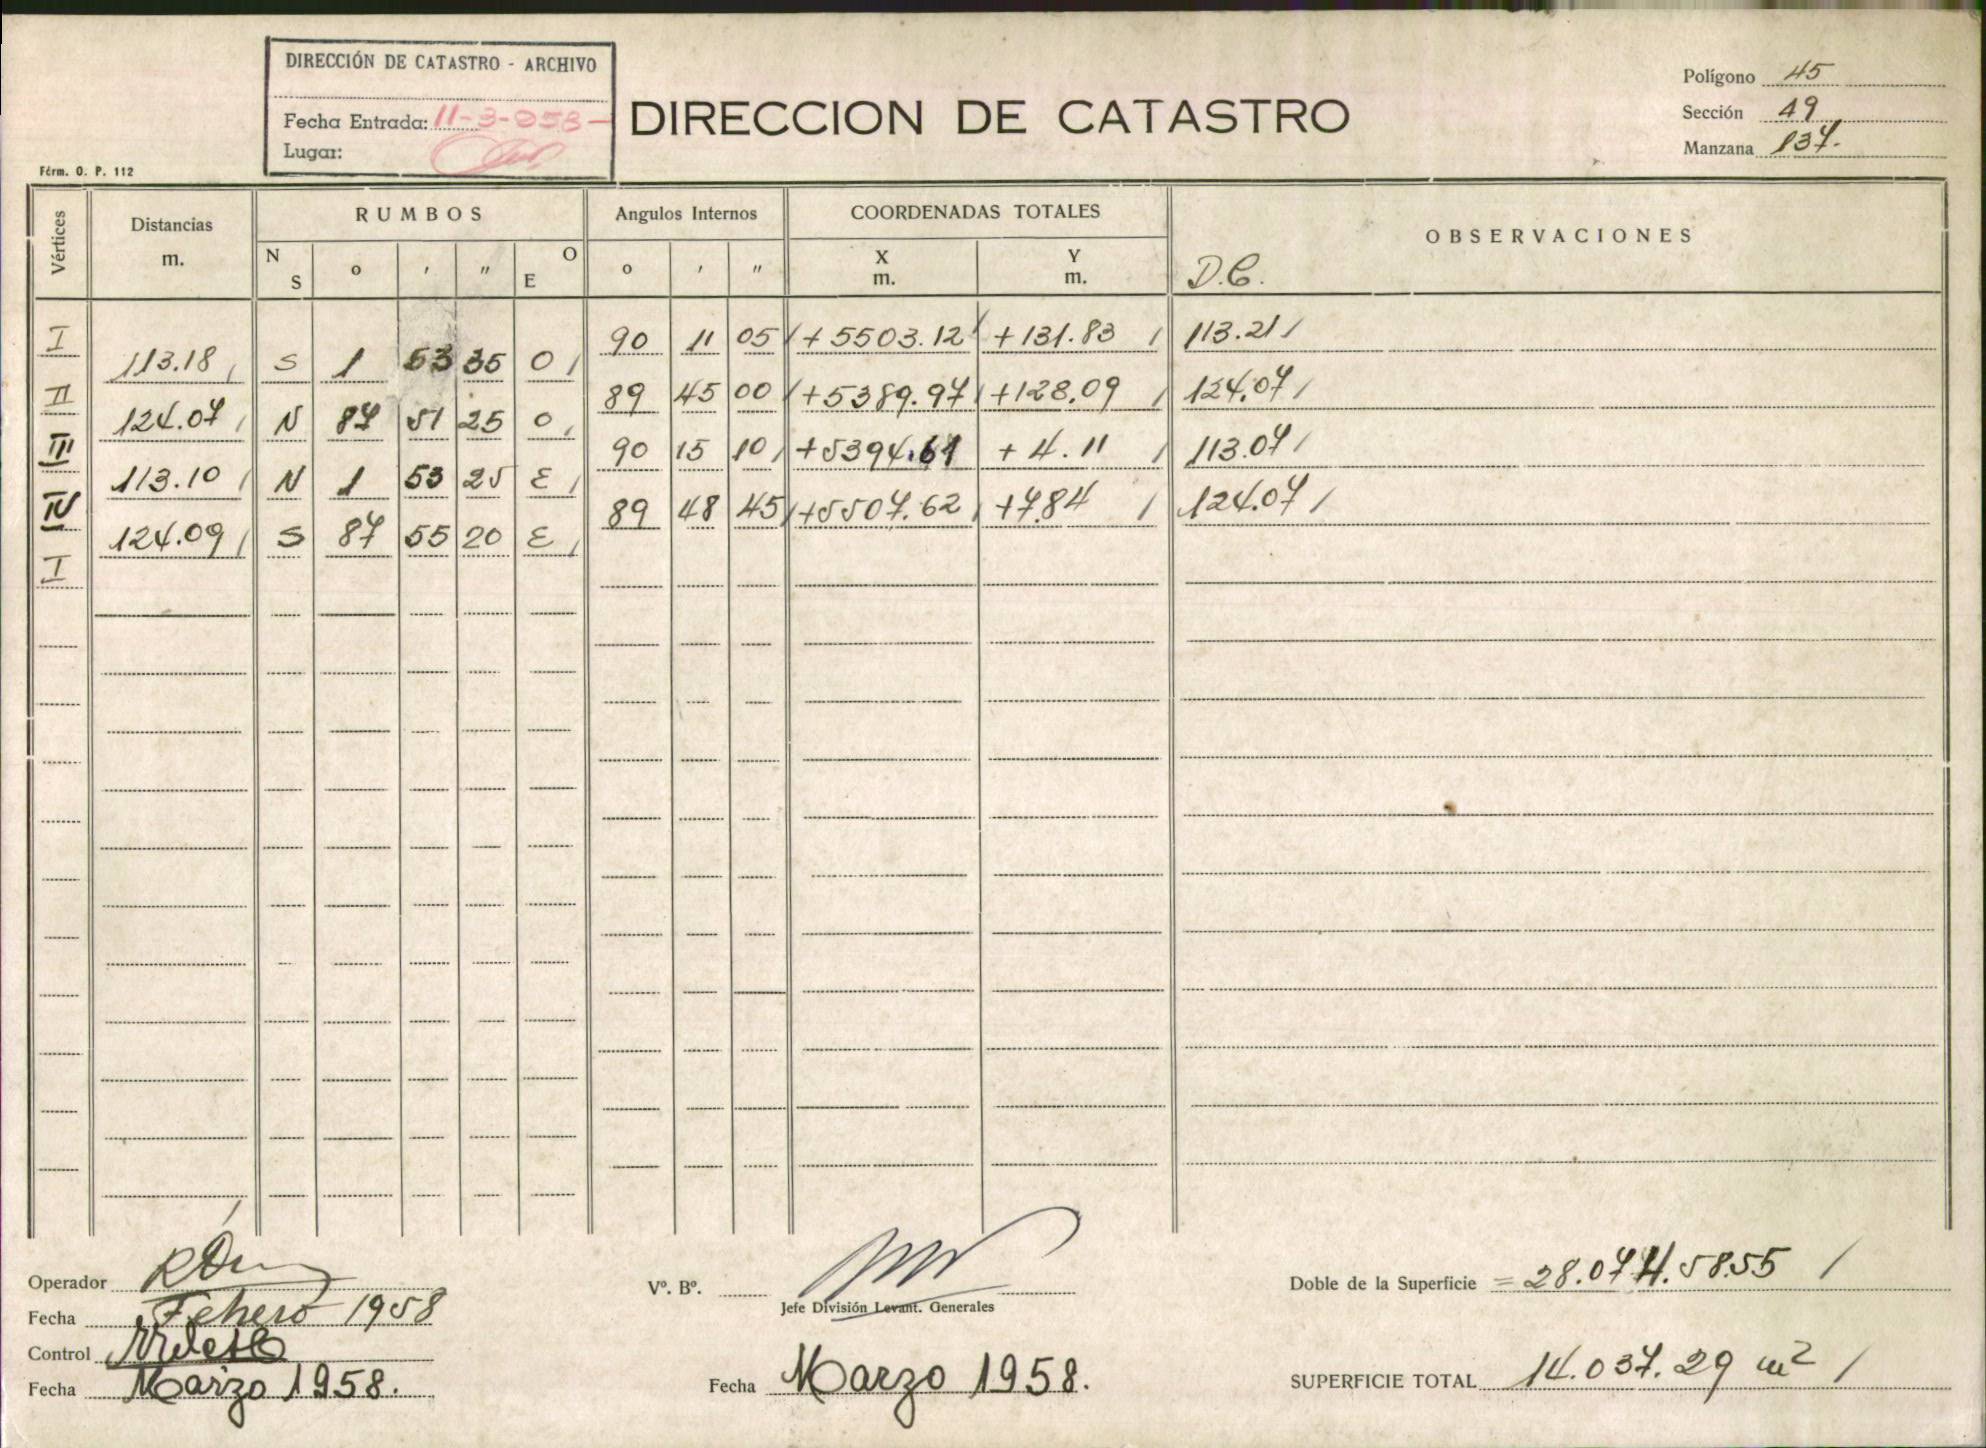 DIRECCIÓN DE CATASTRO - ARCHIVO
Fecha Entrada: 11-3-958-
Lugar:
DIRECCION DE CATASTRO
Polígono 45
Sección 49
Manzana 137.
Fórm. O. P. 112
Vértices Distancias m. RUMBOS N S o ' " O E Angulos Internos o ' " COORDENADAS TOTALES X m. Y m. OBSERVACIONES
D.C.
I 90 11 05 +5503.12 +131.83 113.21
113.18 S 1 53 35 O
II 89 45 00 +5389.97 +128.09 124.07
124.07 N 87 51 25 O
III 90 15 10 +5394.61 +4.11 113.07
113.10 N 1 53 25 E
IV 89 48 45 +5507.62 +7.84 124.07
124.09 S 87 55 20 E
I
Operador
Fecha Febero 1958
Control
Fecha Marzo 1958.
Vº. Bº.
Jefe División Levant. Generales
Fecha Marzo 1958.
Doble de la Superficie = 28.074.5855
SUPERFICIE TOTAL 14.037.29 m²